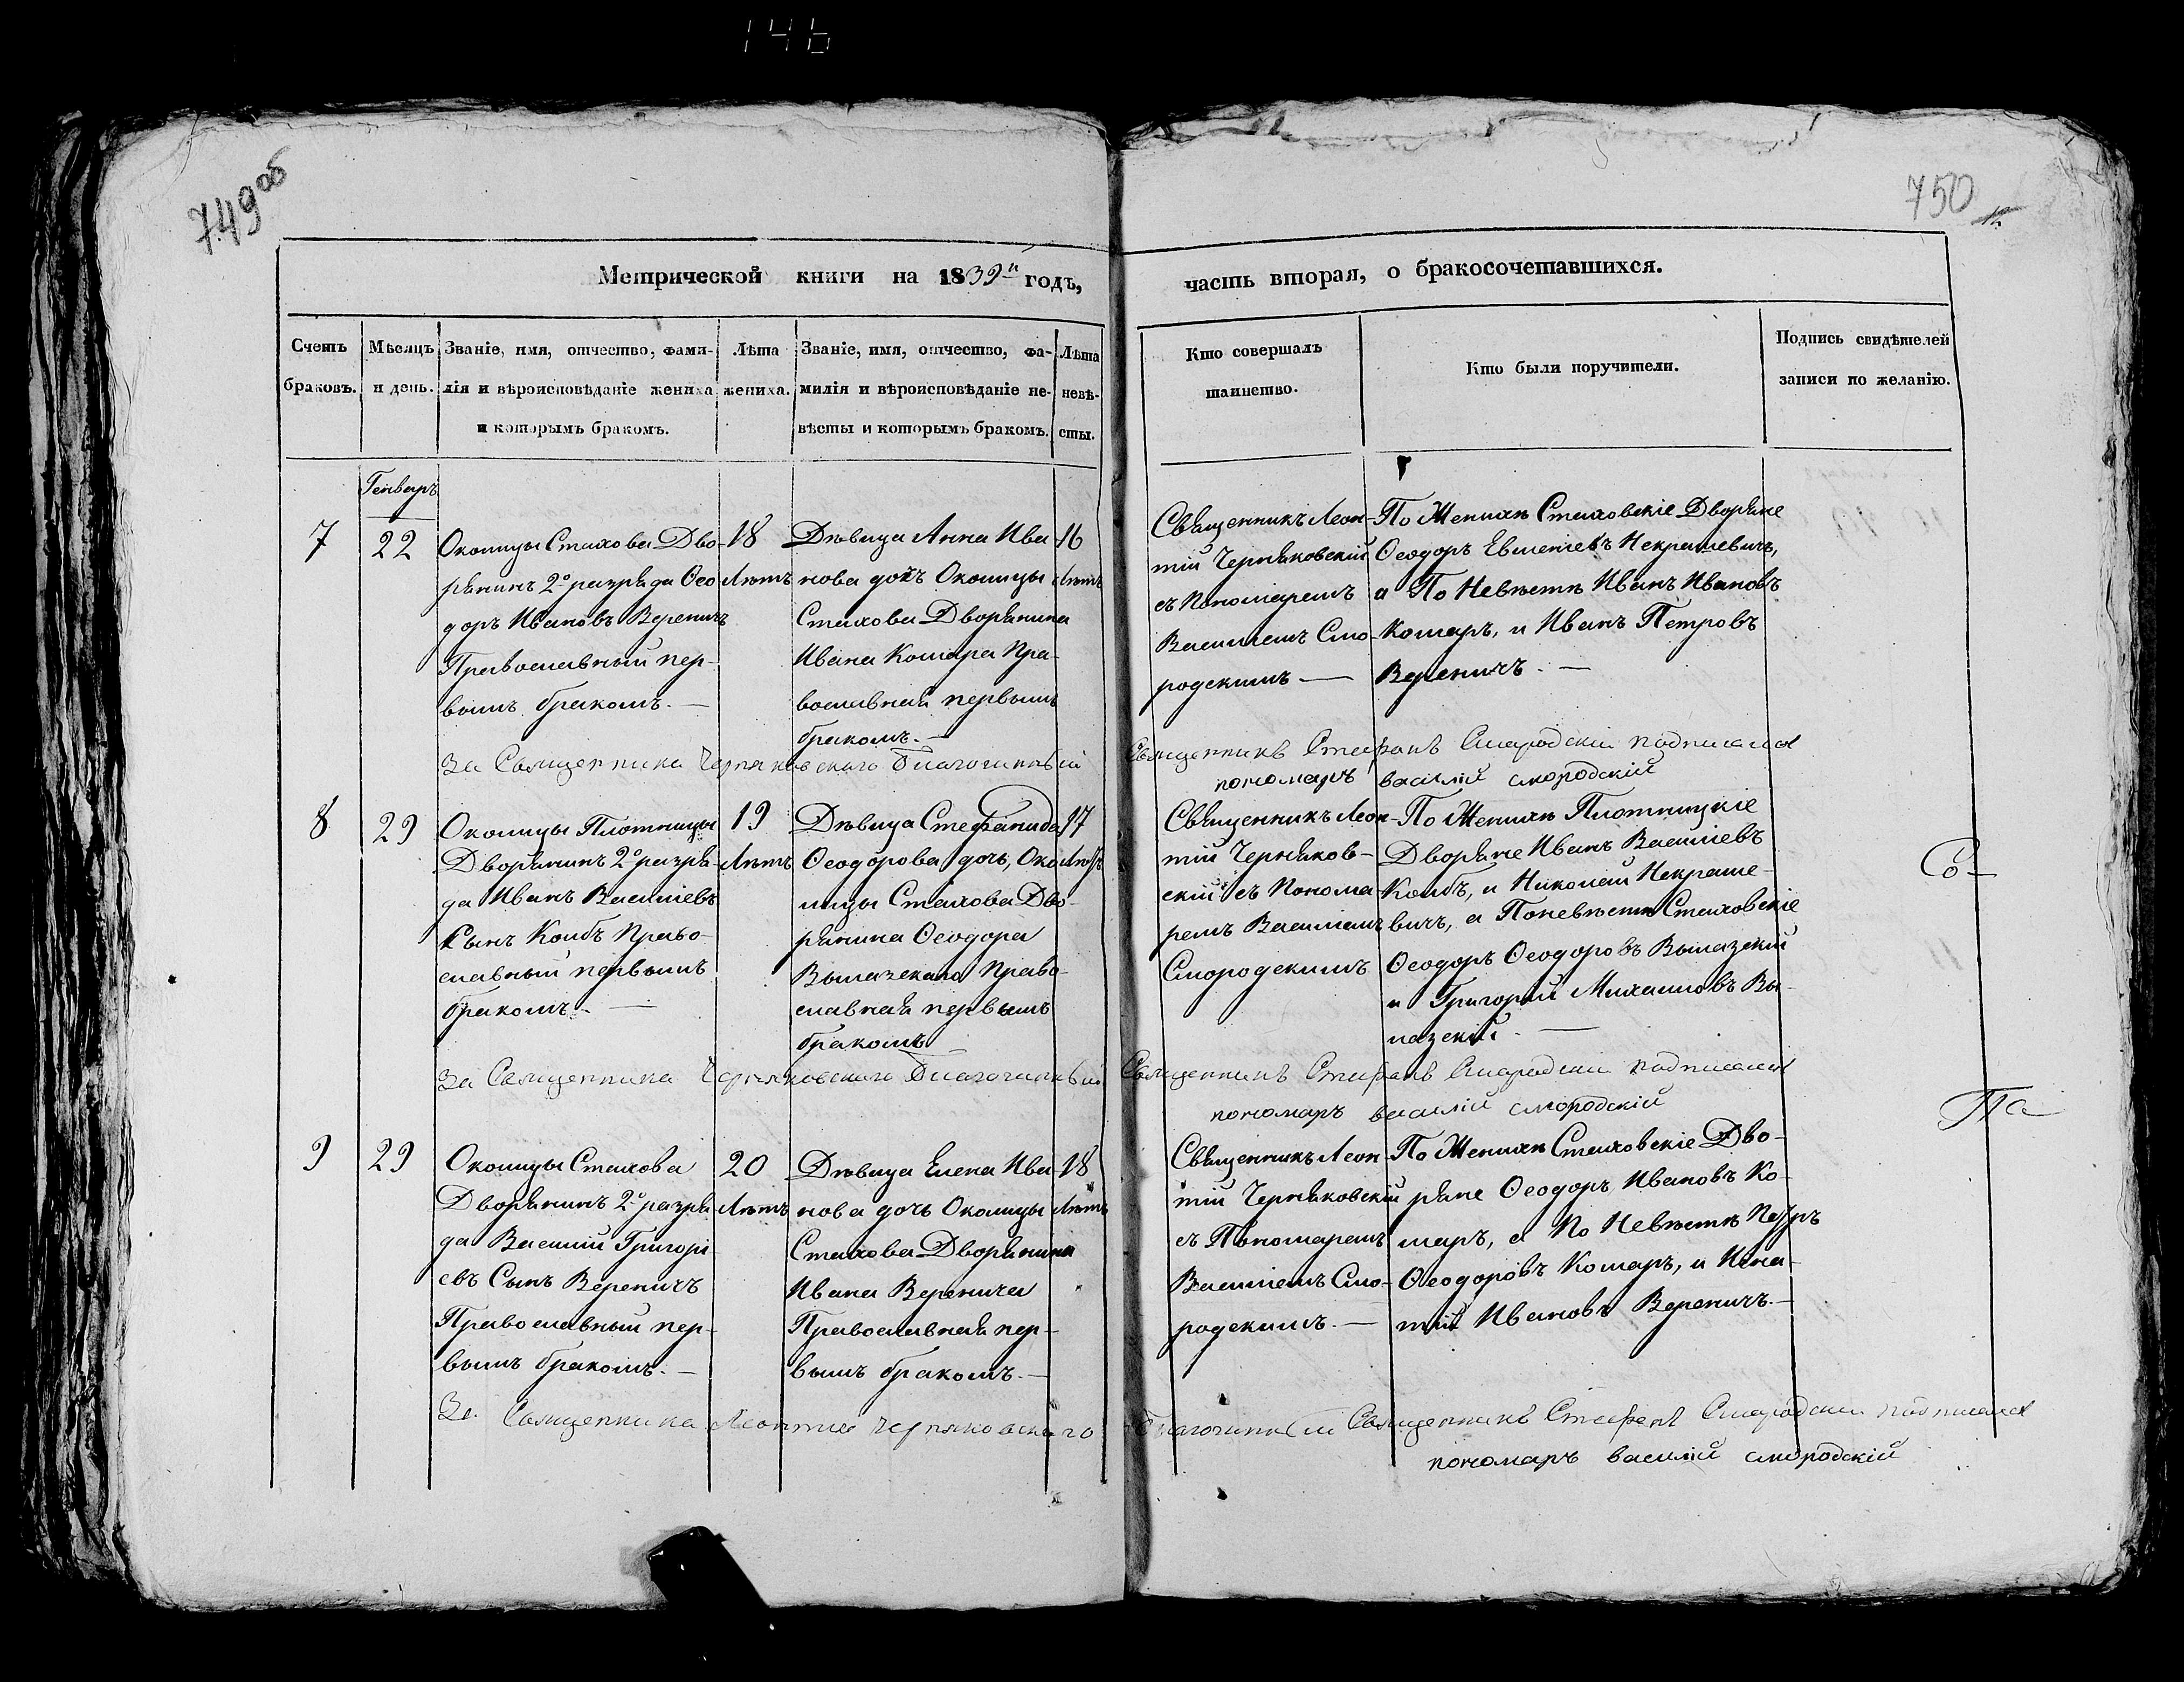 146
749об
750
Метрической книги на 1839й годъ,
часть вторая, о бракосочетавшихся.
Счетъ браковъ.
Мѣсяцъ и день.
Званіе, имя, отчество, фами-
лія и вѣроисповѣданіе жениха
и которымъ бракомъ.
Лѣта жениха.
Званіе, имя, отчество, фа-
милія и вѣроисповѣданіе не-
вѣсты и которымъ бракомъ.
Лѣта невѣ-
сты.
Кто совершалъ
таинство.
Кто были поручители.
Подпись свидѣтелей
записи по желанію.
Генваръ
7
22
Околицы Стахова Дво-
рянинъ 2о разряда Ѳео
доръ Ивановъ Вереничъ
Православный пер-
вымъ бракомъ. —
18
Лѣтъ
Дѣвица Анна Ива
нова дочъ Околицы
Стахова Дворянина
Ивана Комара Пра-
вославная первымъ
бракомъ. —
16
Лѣтъ
Священникъ Леон-
тій Черняковскій
съ Пономаремъ
Василіемъ Смо-
родскимъ —
По Женихѣ Стаховскіе Дворяне
Ѳеодоръ Евменіевъ Некрашевичъ,
а По Невѣстѣ Иванъ Ивановъ
Комаръ, и Иванъ Петровъ
Вереничъ. —
За Священника Черняковскаго Благочинный Священникъ Стефанъ Смародскій подписался
пономаръ василій смородскій
8
29
Околицы Плотницы
Дворянинъ 2о разря-
да Иванъ Василіевъ
Сынъ Колбъ Право-
славный первымъ
бракомъ. —
19
Лѣтъ
Дѣвица Стефанида
Ѳеодорова дочь, Око
лицы Стахова Дво-
рянина Ѳеодора
Вылазскаго Право-
славная первымъ
бракомъ
17
Лѣтъ
Священникъ Леон-
тій Черняков-
скій съ Понома-
ремъ Василіемъ
Смородскимъ
По Женихѣ Плотницкіе
Дворяне Иванъ Василіевъ
Колбъ, и Николай Некраше-
вичъ, а Поневѣстѣ Стаховскіе
Ѳеодоръ Ѳеодоровъ Вылазскій
и Григорій Михаиловъ Вы-
лазскій. —
За Священника Черняковскаго Благочинный Священникъ Стефанъ Смародскій подписался
пономаръ василій смородскій
9
29
Околицы Стахова
Дворянинъ 2о разря-
да Василій Григорі-
евъ Сынъ Вереничъ
Православный пер-
вымъ бракомъ. —
20
Лѣтъ
Дѣвица Елена Ива-
нова дочь Околицы
Стахова Дворянина
Ивана Веренича
Православная пер-
вымъ бракомъ. —
18
Лѣтъ
Священникъ Леон-
тій Черняковскій
съ Пономаремъ
Василіемъ Смо-
родскимъ. —
По Женихѣ Стаховскіе Дво-
ряне Ѳеодоръ Ивановъ Ко-
маръ, а По Невѣстѣ Петръ
Ѳеодоровъ Комаръ, и Игна-
тій Ивановъ Вереничъ. —
За Священника Леонтія Черняковскаго Благочинный Священникъ Стефанъ Смародскій подписался
пономаръ василій смородскій
Па